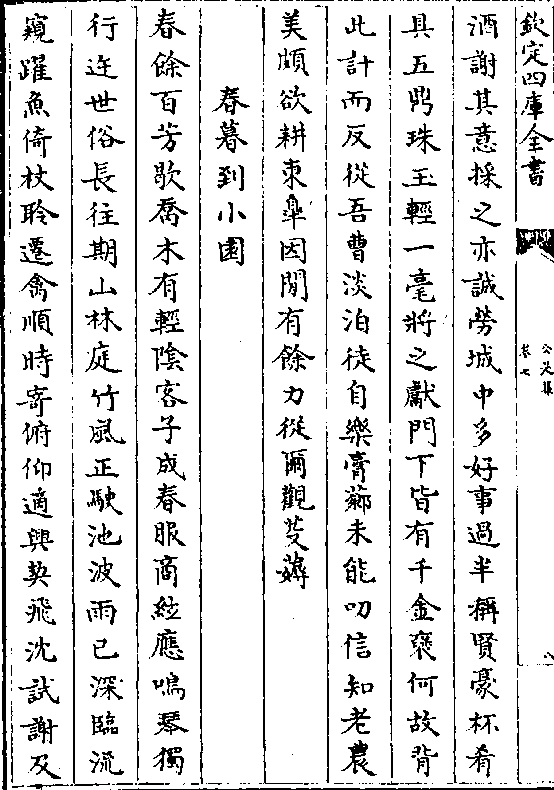 欽定四庫全書
公是集
卷七
酒謝其意採之亦誠勞城中多好事過半稱賢豪杯肴
具五鼎珠玉輕一毫將之獻門下皆有千金褒何故背
此計而反從吾曹淡泊徒自樂膏薌未能叨信知老農
美頗欲耕東臯因閒有餘力從爾觀芟薅
春暮到小園
春餘百芳歇喬木有輕陰客子成春服商絃應鳴琴獨
行迕世俗長往期山林庭竹風正駛池波雨已深臨流
窺躍魚倚杖聆遷禽順時寄俯仰適興契飛沈試謝及